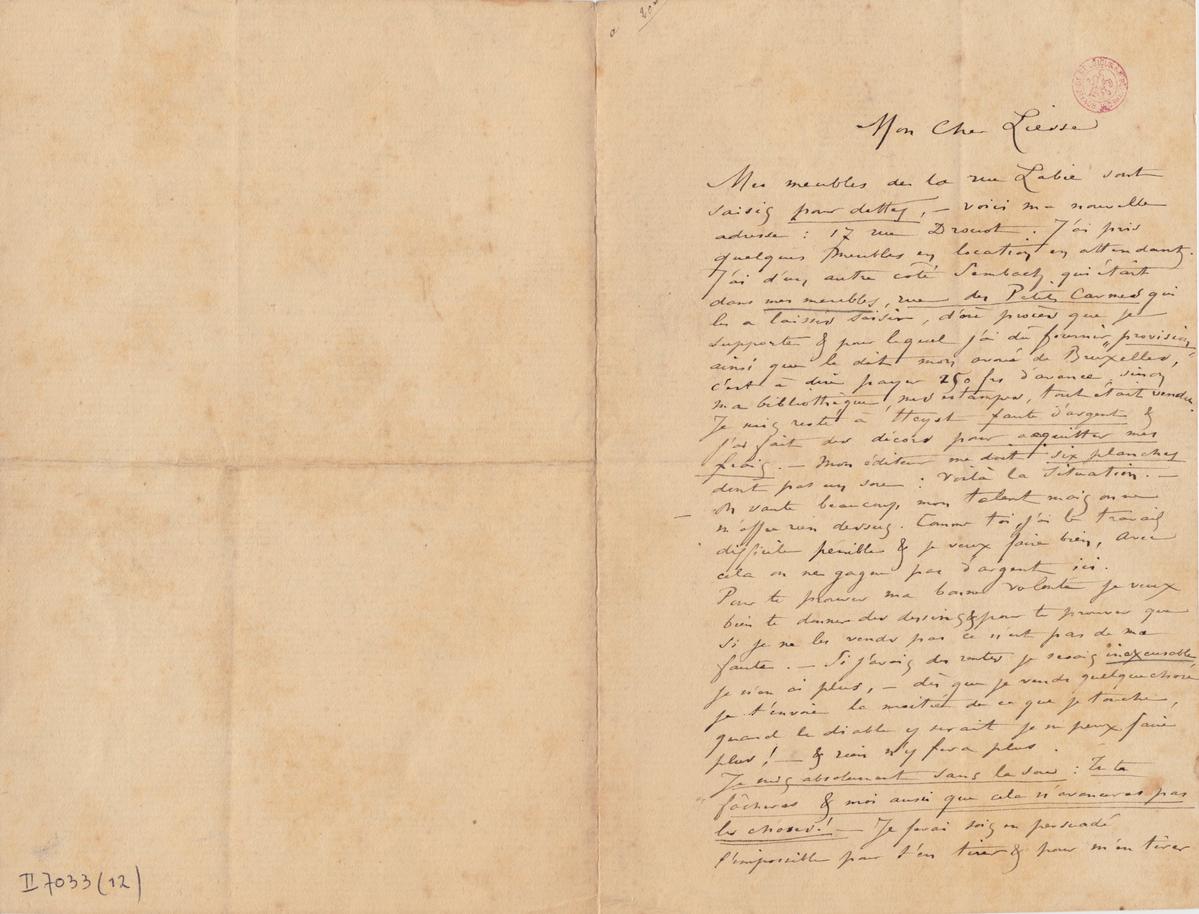 Mon Cher Liesse
Mes meubles de la rue Labie sont
saisis pour dettes, – voici ma nouvelle
adresse : 17 rue Drouot. J'ai pris
quelques meubles en location en attendant.
J'ai d'un autre côté qui était
dans mes meubles, rue des Petits Carmes qui
les a laissés saisir, d'où procès que je
supporte & pour lequel j'ai dû fournir "provision"
ainsi que le dit mon avoué de Bruxelles,
c'est à dire payer 250 frs d'avance, sinon
ma bibliothèque, mes estampes, tout était vendu.
Je suis resté à Heyst faute d'argent &
j'ai fait des décors pour acquitter mes
frais. – Mon éditeur me doit six planches
dont pas un sou : voilà la situation. –
– On vante beaucoup mon talent mais on ne
m'offre rien dessus. Comme toi, j'ai le travail
difficile pénible & je veux faire bien, avec
cela on ne gagne pas d'argent ici.
Pour te prouver ma bonne volonté je veux
bien te donner des dessins & pour te prouver que
si je ne les vends pas ce n'est pas de ma
faute. – Si j'avais des rentes je serais inexcusable
je n'en ai plus, – dès que je vends quelquechose
je t'envoie la moitié de ce que je touche,
quand le diable y serait je ne peux faire
plus ! – & rien n'y fera plus.
Je suis absolument sans le sou : Tu te
fâcheras & moi aussi que cela n'avancera pas
les choses ! – Je ferai sois en persuadé
l'impossible pour t'en tirer & pour m'en tirer
II 7033 (12)